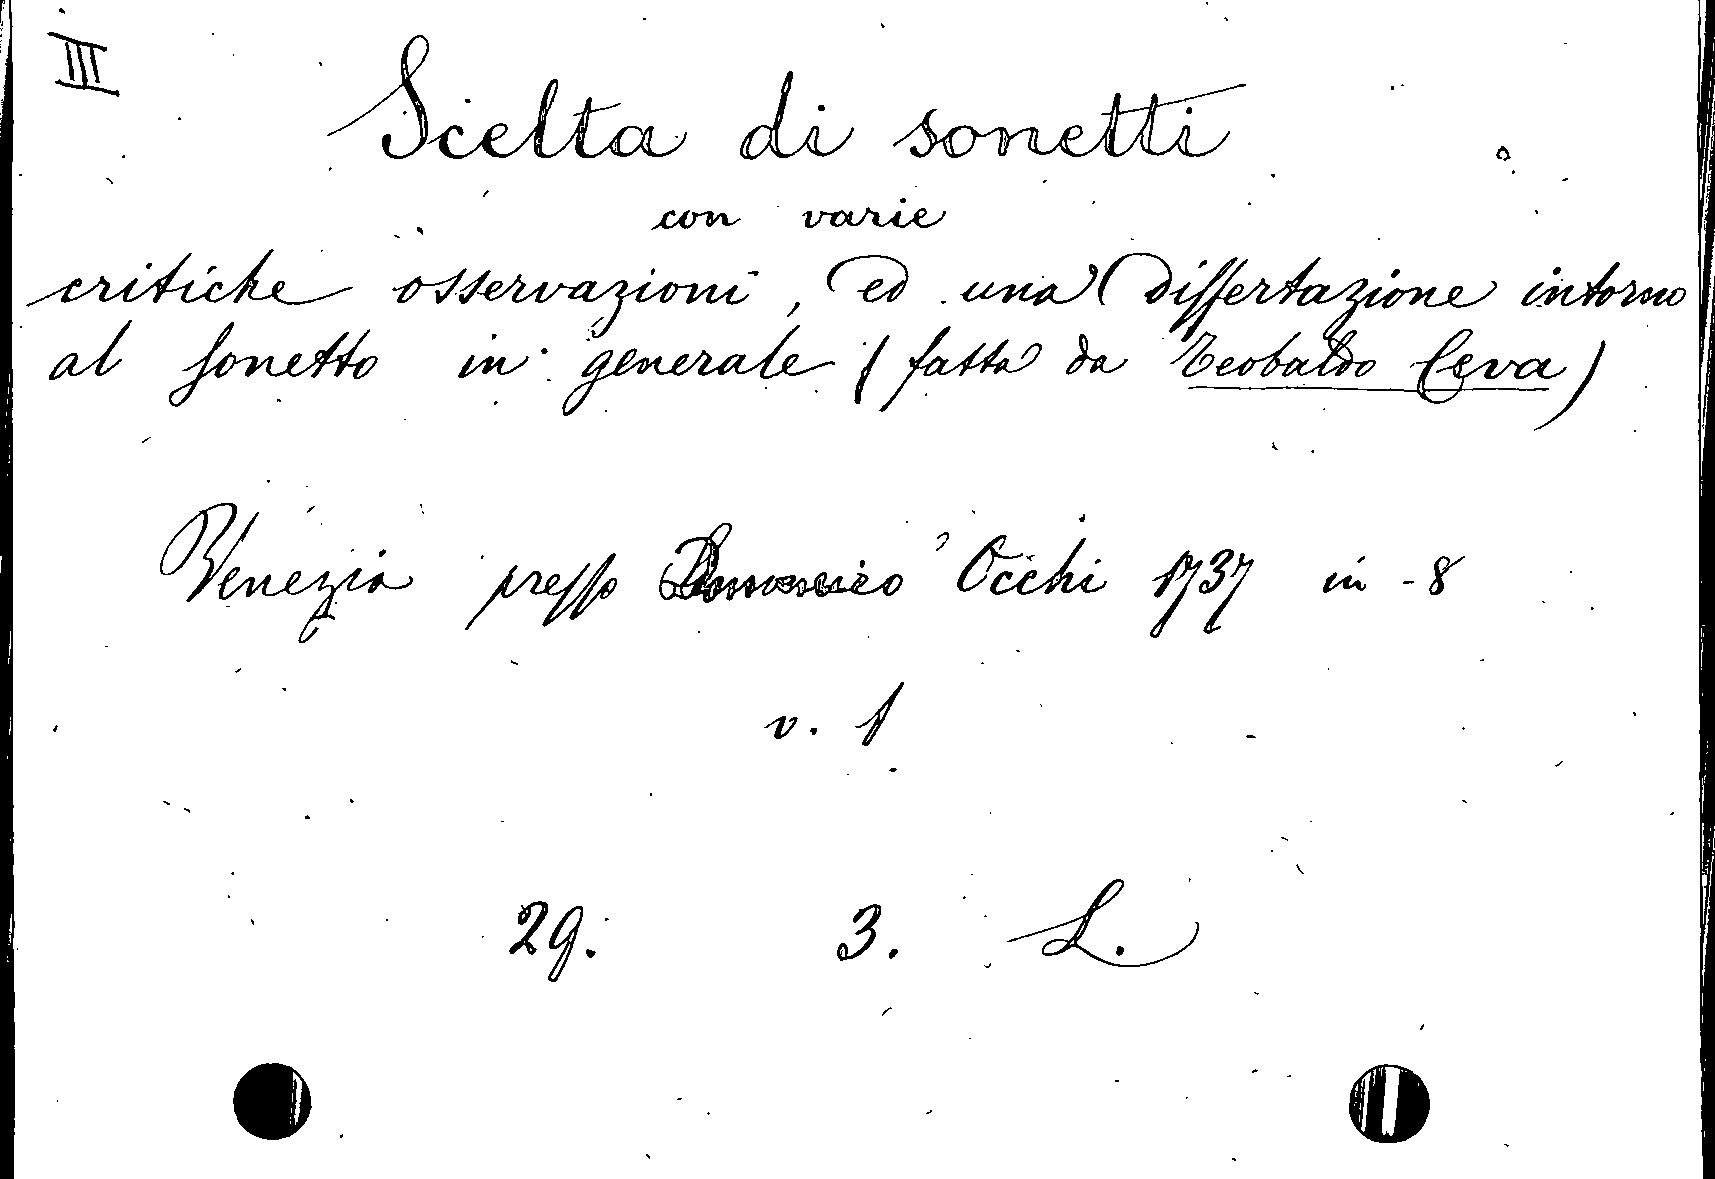 III
Scelta di sonetti
con varie
critiche osservazioni, ed una dissertazione intorno
al sonetto in generale (fatta da Teobaldo Ceva)
Venezia presso Domenico Occhi 1737 in-8
v. 1
29. 3. L.